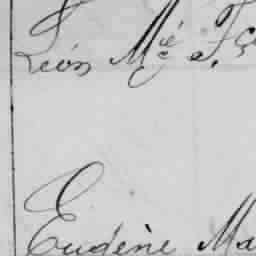 Léon Mie
Eugène Ma